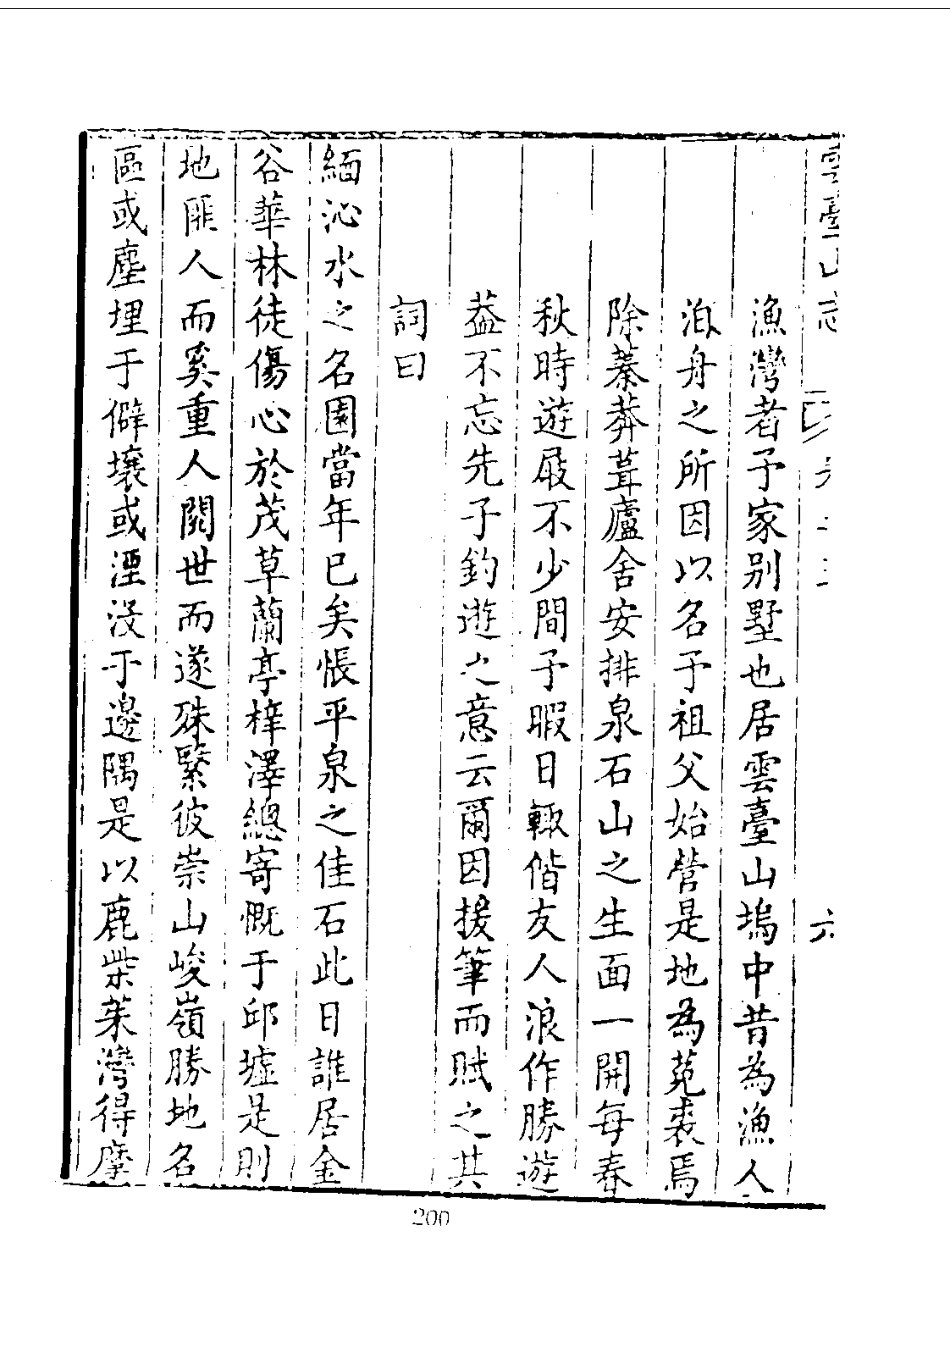 雲臺山志
六
漁灣者予家别墅也居雲臺山塢中昔為漁人
泊舟之所因以名予祖父始營是地為菟裘焉
除蓁莽葺廬舍安排泉石山之生面一開每春
秋時遊屐不少間予暇日輙偕友人浪作勝遊
葢不忘先子釣遊之意云爾因援筆而賦之其
詞曰
緬沁水之名園當年已矣悵平泉之佳石此日誰居金
谷華林徒傷心於茂草蘭亭梓澤總寄慨于邱墟是則
地匪人而奚重人閱世而遂殊繄彼崇山峻嶺勝地名
區或塵埋于僻壤或湮没于邊隅是以鹿柴茱灣得摩
200